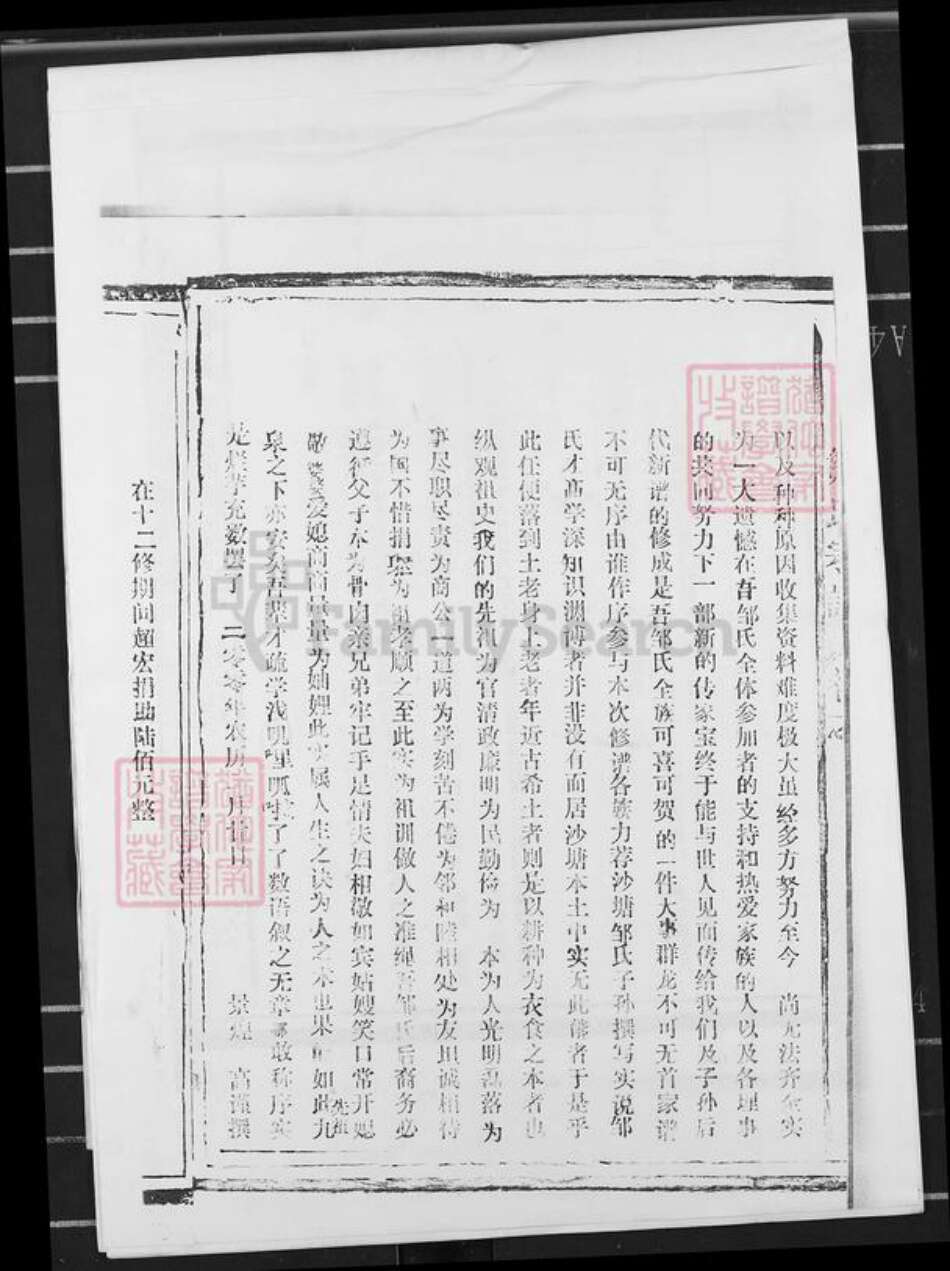 以及种种原因收集资料难度极大虽经多方努力至今 尚无法齐全实
为一大遗憾在吾邹氏全体参加者的支持和热爱家族的人以及各理事
的共同努力下一部新的传家宝终于能与世人见面传给我们及子孙后
代新谱的修成是吾邹氏全族可喜可贺的一件大事群龙不可无首家谱
不可无序由谁作序参与本次修谱各族力荐沙塘邹氏子孙撰写实说邹
氏才高学深知识渊博者并非没有而居沙塘本土中实无此能者于是乎
此任便落到土老身上老者年近古希土者则是以耕种为衣食之本者也
纵观祖史我们的先祖为官清政廉明为民勤俭为 本为人光明磊落为
事尽职尽责为商公一道两为学刻苦不倦为邻和睦相处为友坦诚相待
为国不惜捐 为祖孝顺之至此实为祖训做人之准绳吾邹氏后裔务必
遵行父子本为骨肉亲兄弟牢记手足情夫妇相敬如宾姑嫂笑口常开媳
敬婆婆爱媳商商量量为妯娌此实属人生之诀为人之本患果能如此九
先祖
泉之下亦安矣吾辈才疏学浅 了了数语叙之无章哪敢称序实
是烂芋充数罢了 二零零零年农历 月廿日 景煌 高谨撰
在十二修期间超宏捐助陆佰元整
FamilySearch